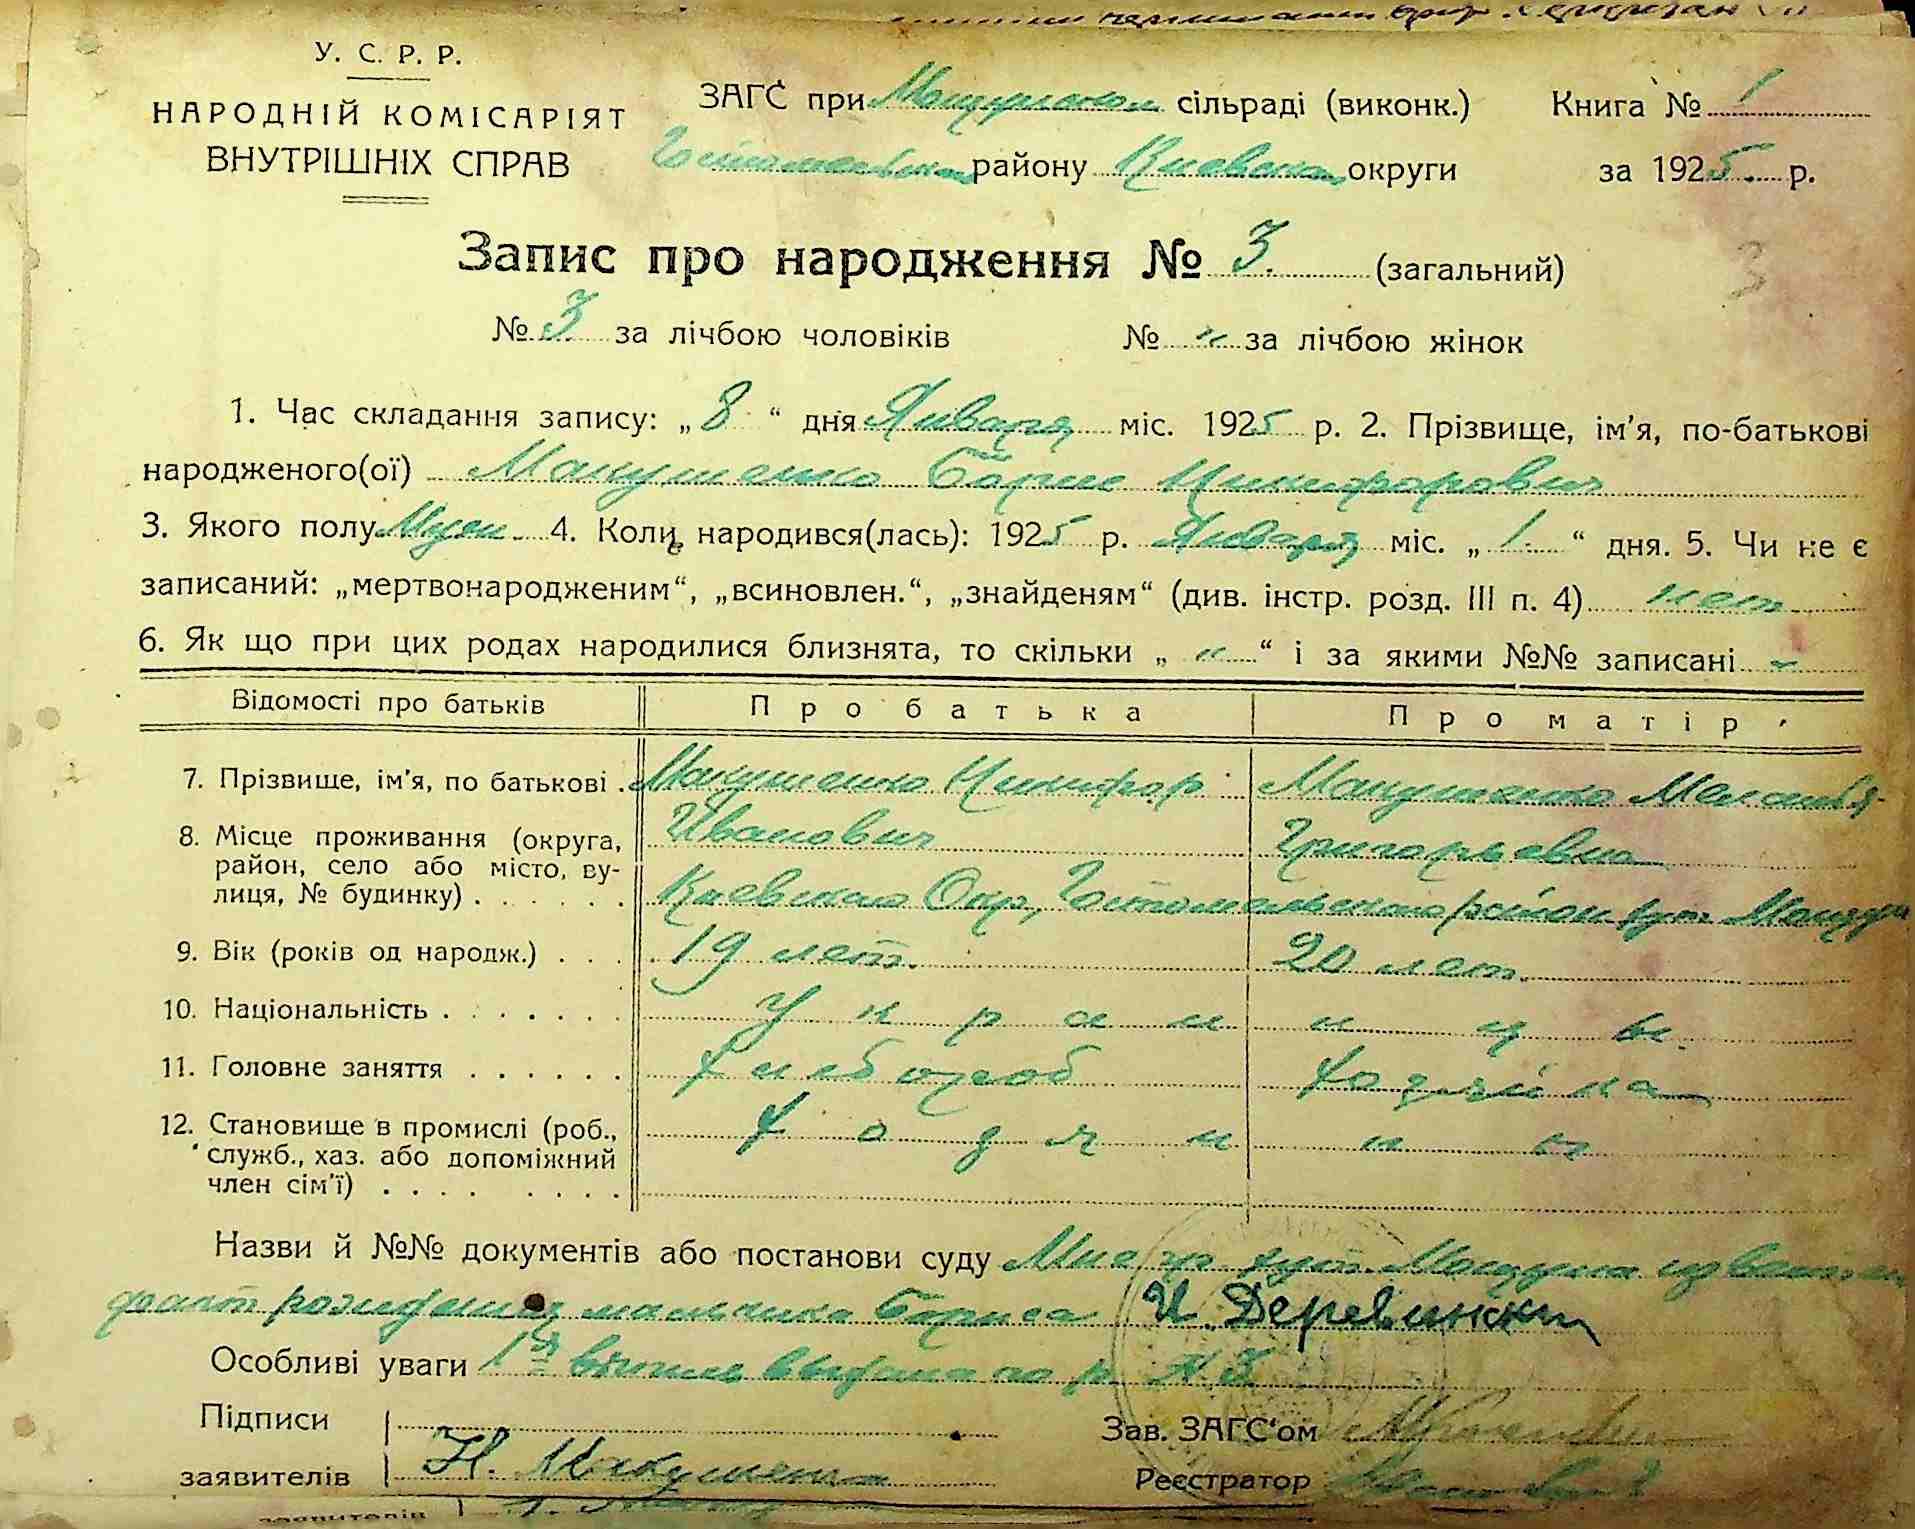 У. С. Р. Р.
НАРОДНІЙ КОМІСАРІЯТ
ВНУТРІШНІХ СПРАВ
ЗАГС при Мощунском сільраді (виконк.) Книга № 1
Гостомельск району Киевской округи за 1925 р.
Запис про народження № 3. (загальний)
3
№ 3. за лічбою чоловіків № „ за лічбою жінок
1. Час складання запису: „ 8 “ дня Января міс. 1925 р. 2. Прізвище, ім'я, по-батькові
народженого(ої) Макушенко Борис Никифорович
3. Якого полу Муж 4. Коли народився(лась): 1925 р. Января міс. „ 1. “ дня. 5. Чи не є
записаний: „мертвонародженим“, „всиновлен.“, „знайденям“ (див. інстр. розд. III п. 4) нет
6. Як що при цих родах народилися близнята, то скільки „ „ “ і за якими №№ записані -
Відомості про батьків Про батька Про матір
7. Прізвище, ім'я, по батькові . Макушенко Никифор Макушенко Мелания
Иванович Григорьевна
8. Місце проживання (округа,
район, село або місто, ву-
лиця, № будинку) . . . . . . Киевского Окр, Гостомельского район хут. Мощун
9. Вік (років од народж.) . . . 19 лет. 20 лет.
10. Національність . . . . . . . Украинцы.
11. Головне заняття . . . . . . Хлебороб Хозяйка
12. Становище в промислі (роб., Хозяини
служб., хаз. або допоміжний
член сім'ї) . . . . . . . .
Назви й №№ документів або постанови суду хут. Мощуна
факт рождения мальчика Бориса И. Деревинский
Особливі уваги 1я выпись выдана по р. № 3
Підписи
заявителів Н. Макушенко
Зав. ЗАГС'ом
Реєстратор
заявителів